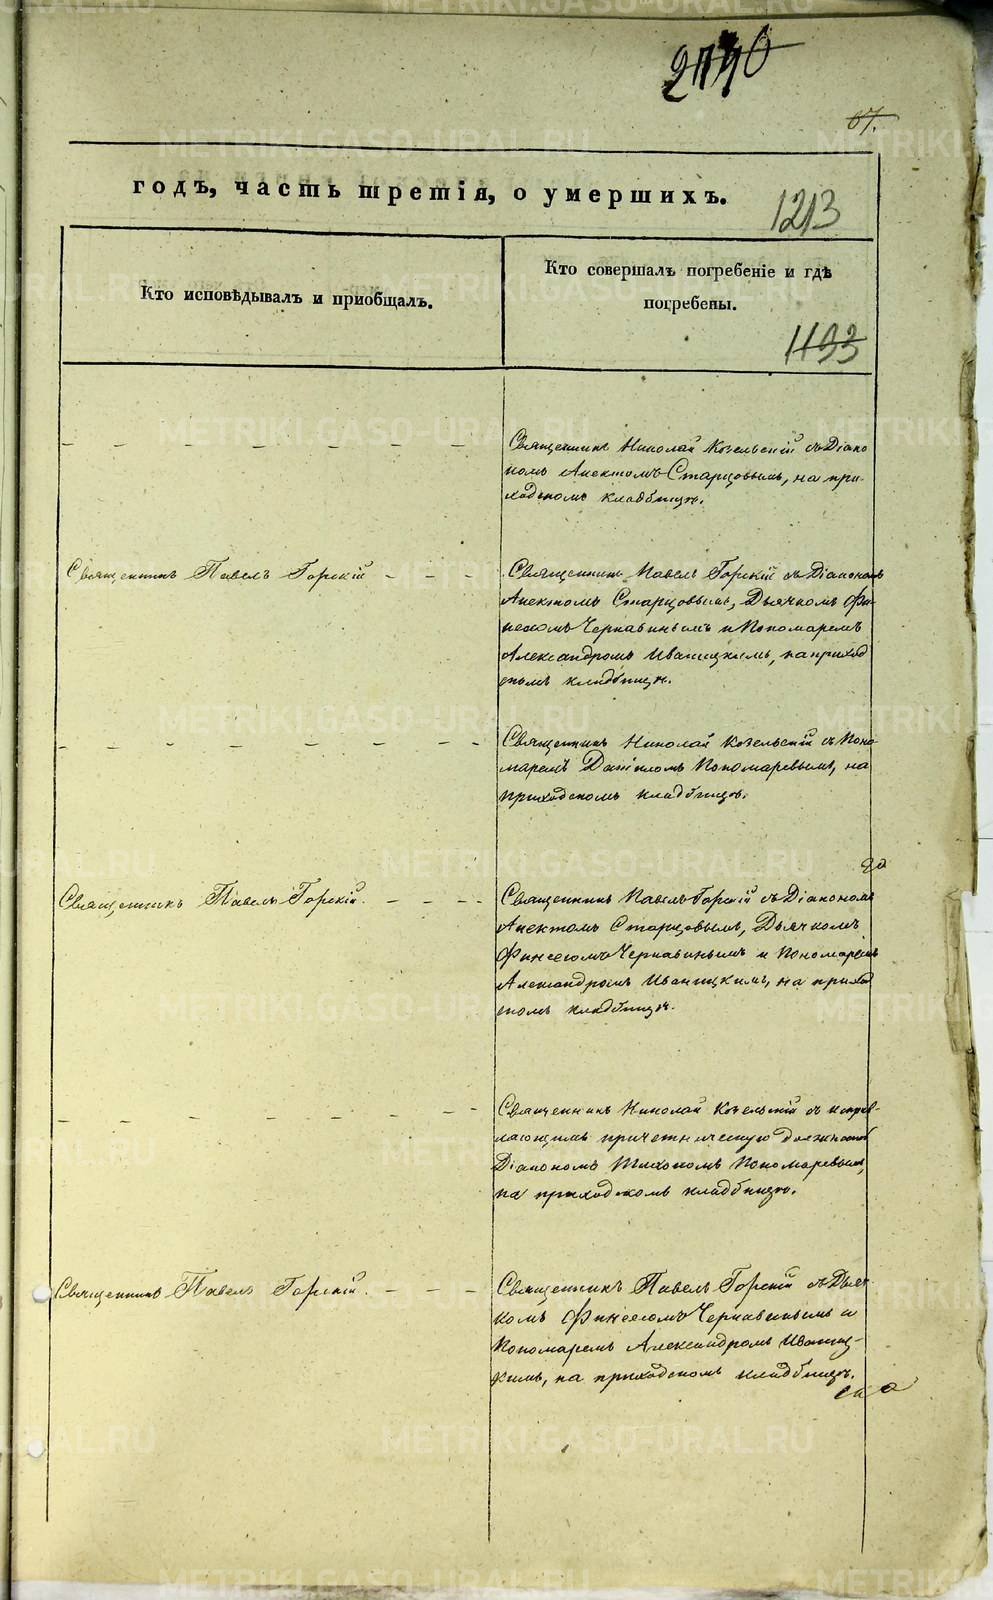 67.
годъ, часть третія, о умершихъ.
1213
Кто исповѣдывалъ и приобщалъ.
Кто совершалъ погребеніе и гдѣ
погребены.
1193
Священникъ Николай Козельскій съ Діако
номъ Аектомъ Старцовымъ, на при-
ходскомъ кладбищѣ.
Священникъ Павелъ Горскій - - -
Священникъ Павелъ Горскій съ Діакономъ
Аектомъ Старцовымъ, Дьячкомъ Фи-
неесомъ Чернавинымъ и Пономаремъ
Александромъ Иваницкимъ, на приход
скомъ кладбищѣ.
Священникъ Николай Козельскій съ Поно-
маремъ Даніиломъ Пономаревымъ, на
приходскомъ кладбищѣ.
Священникъ Павелъ Горскій. - - - -
Священникъ Павелъ Горскій съ Діакономъ
Аектомъ Старцовымъ, Дьячкомъ
Финеесомъ Чернавинымъ и Пономаремъ
Александромъ Иваницкимъ, на приход
скомъ кладбищѣ.
Священникъ Николай Козельскій съ исправ-
ляющимъ причетническую должность
Діакономъ Тихономъ Пономаревымъ,
на приходскомъ кладбищѣ.
Священникъ Павелъ Горскій. - - -
Священникъ Павелъ Горскій съ Дьяч-
комъ Финеесомъ Чернавинымъ и
Пономаремъ Александромъ Иваниц-
кимъ, на приходскомъ кладбищѣ.
METRIKI.GASO-URAL.RU